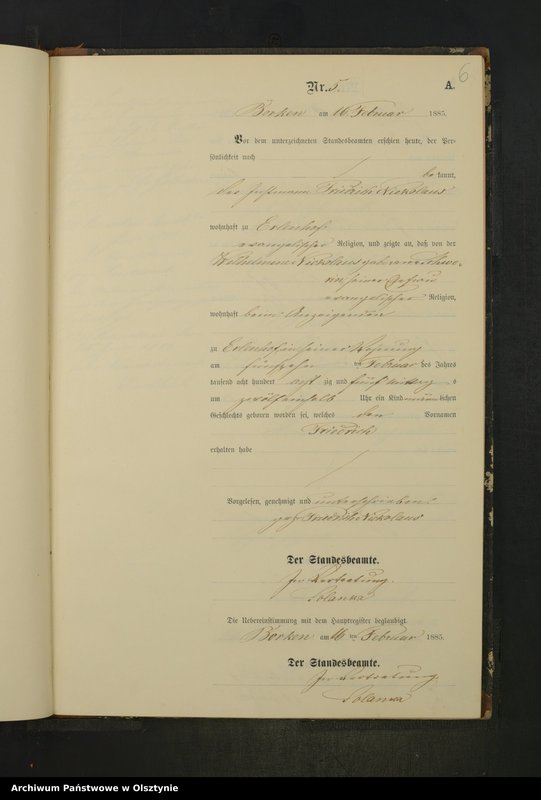 6
Nr. 5.
A.
Borken am 16 Februar 1885.
Vor dem unterzeichneten Standesbeamten erschien heute, der Per-
sönlichkeit nach
be kannt,
der Friedrich Nickolaus
wohnhaft zu Erlenhof
evangelischer Religion, und zeigte an, daß von der
Wilhelmine Nickolaus
seiner Ehefrau
evangelischer Religion,
wohnhaft beim Anzeigenden
zu Erlenhof in seiner Wohnung
am fünfzehn ten Februar des Jahres
tausend acht hundert acht zig und fünf Mittags
um zwölf einhalb Uhr ein Kind männlichen
Geschlechts geboren worden sei, welches den Vornamen
Friedrich
erhalten habe
Vorgelesen, genehmigt und unterschrieben.
gez. Friedrich Nickolaus
Der Standesbeamte.
In Vertretung.
Solanka
Die Uebereinstimmung mit dem Hauptregister beglaubigt
Borken am 16 ten Februar 1885.
Der Standesbeamte.
In Vertretung.
Solanka
Archiwum Państwowe w Olsztynie